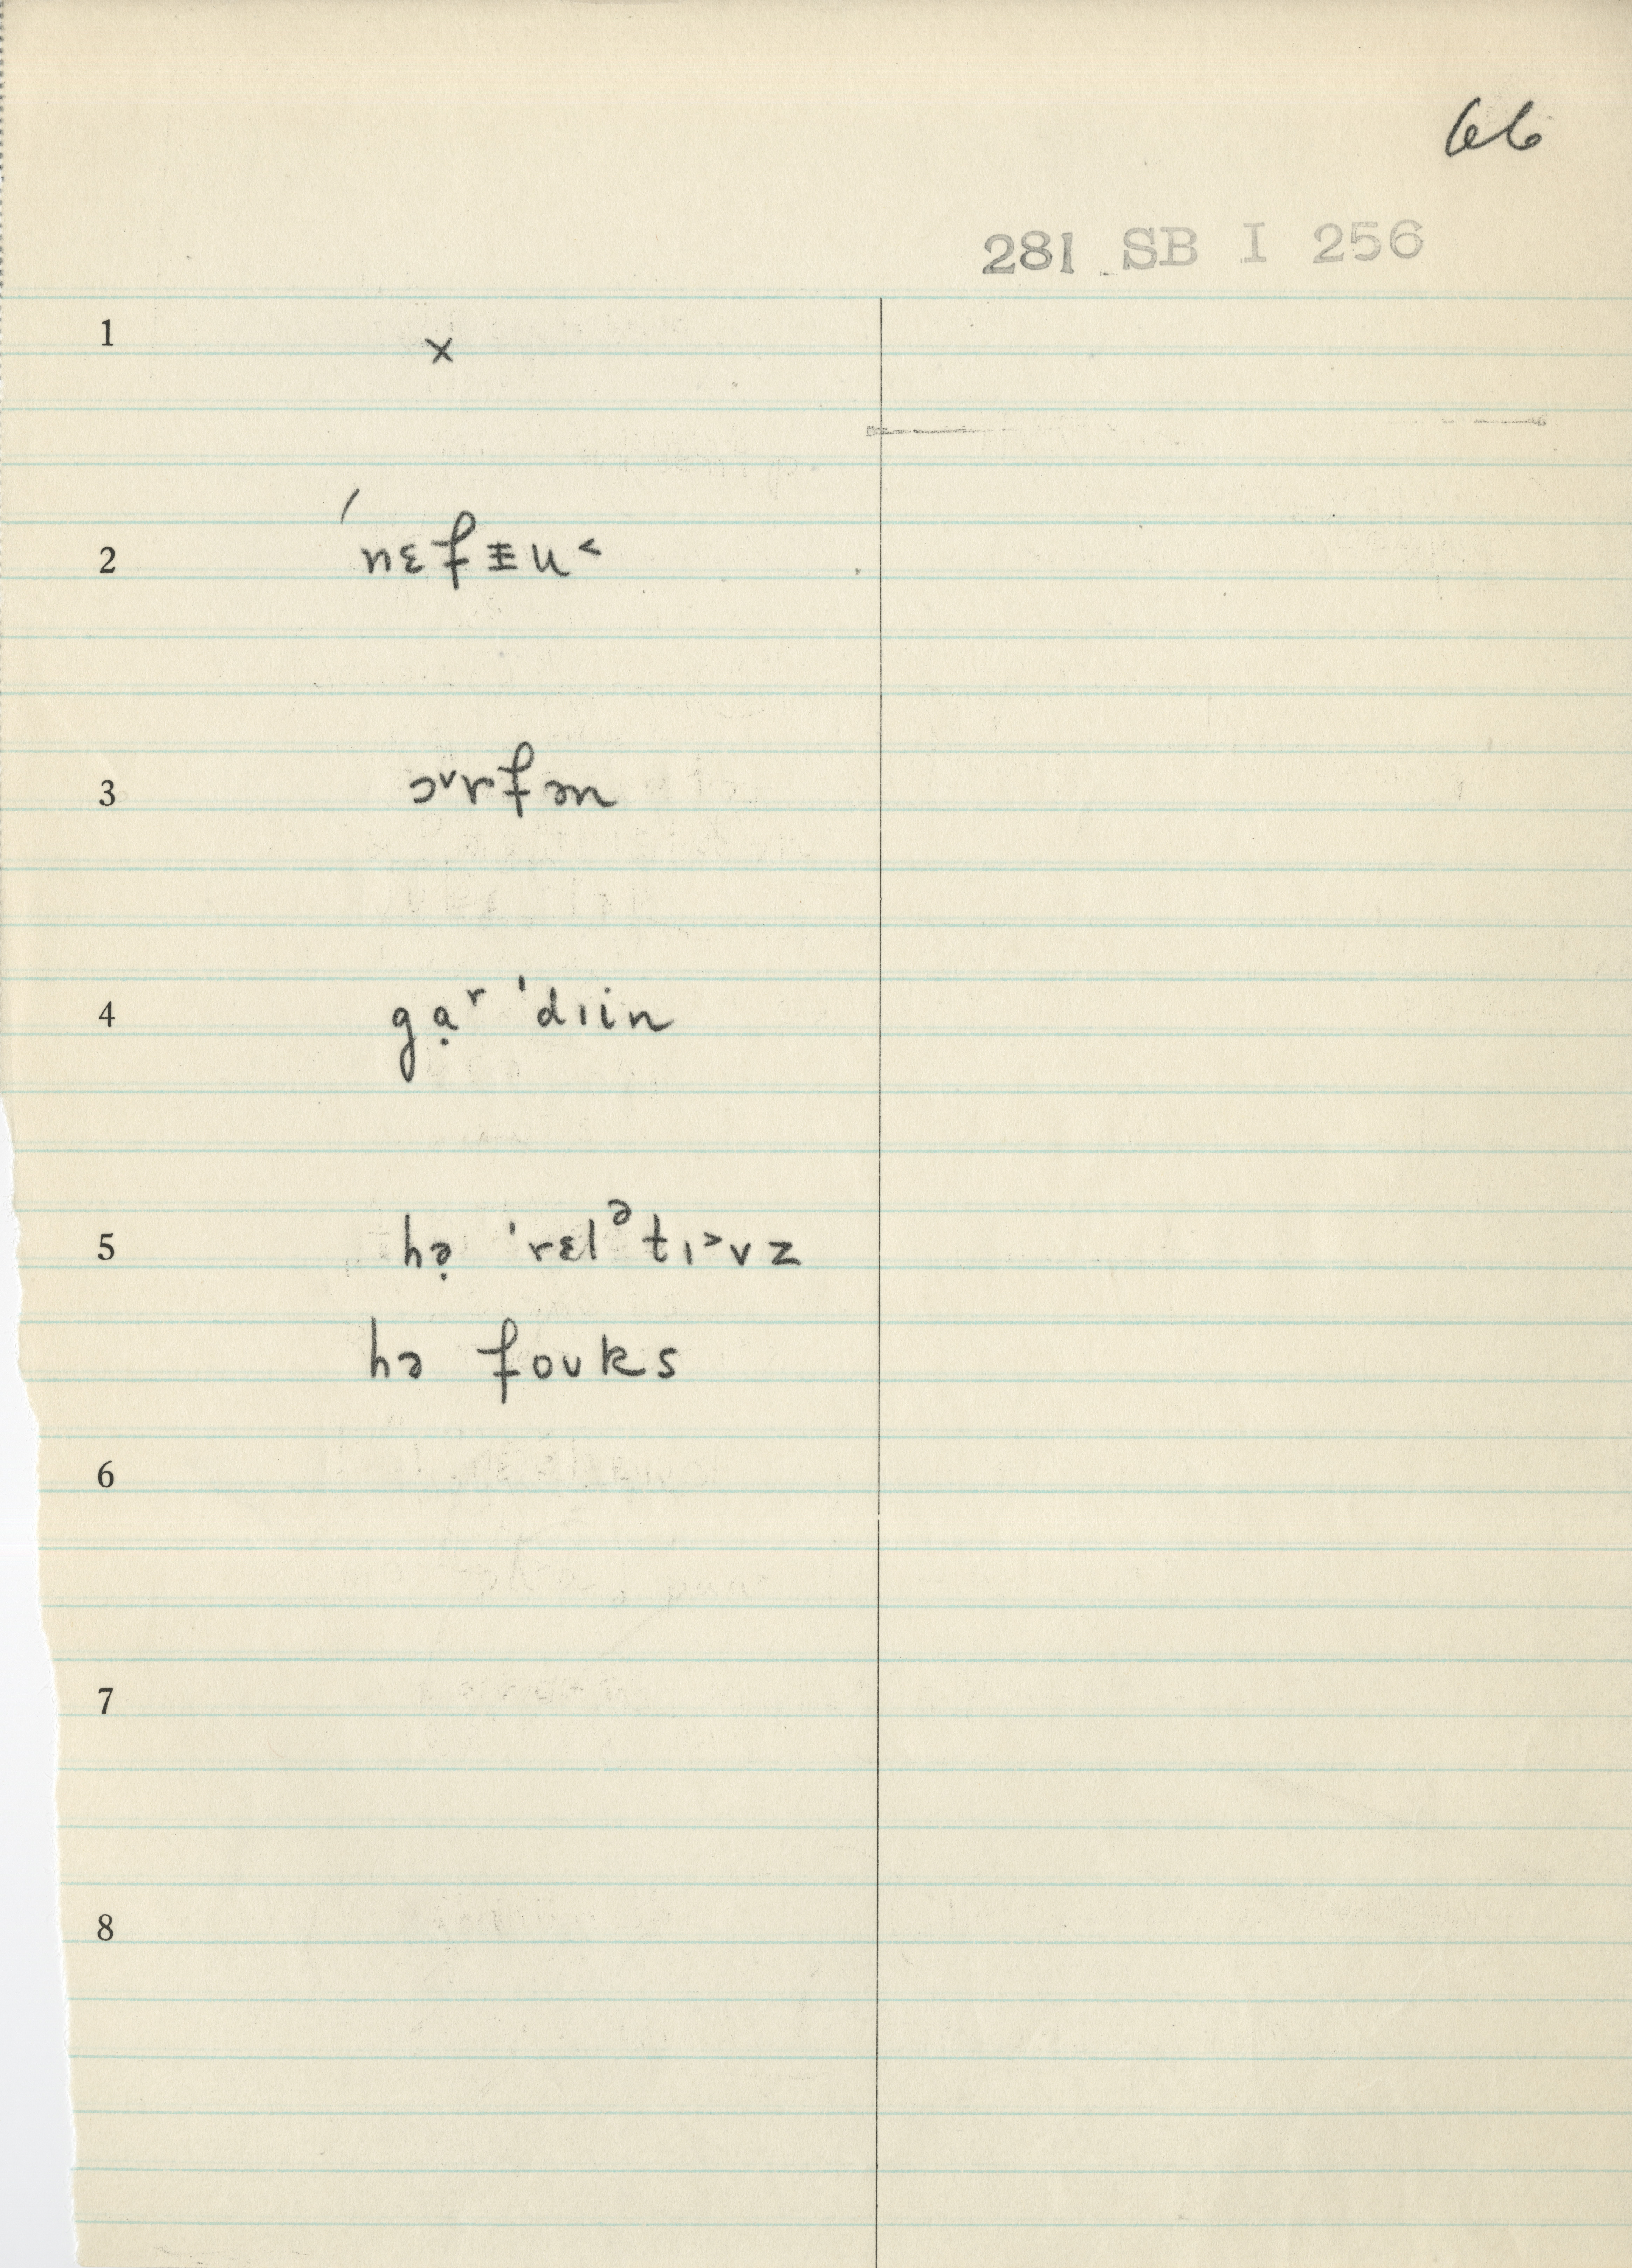 66
281 SB I 256
1 ×
2 ˈnɛfᵻu˂
3 ɔᵛrfən
4 gạʳ ˈdɪin
5 hə̣ ˈrɛlᵊtɪ˃vz
hə foʊks
6
7
8